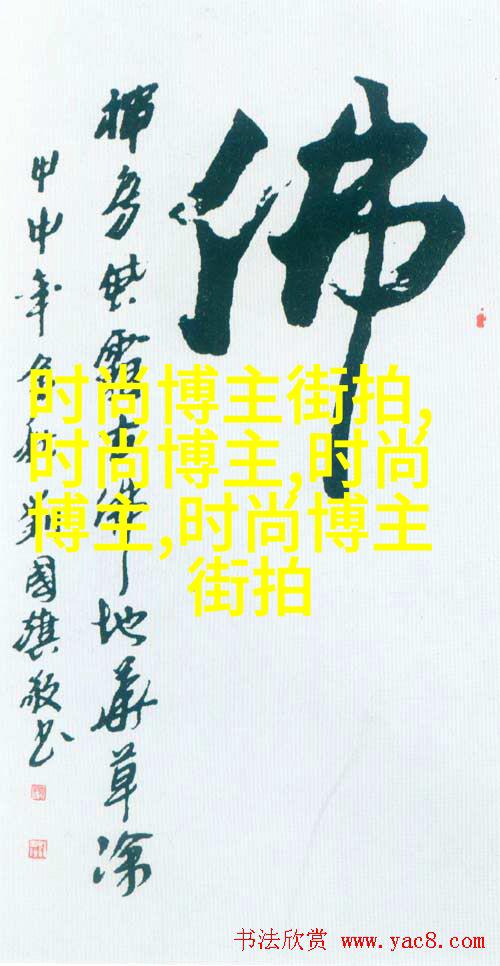 佛
地華草
甲申年國旗敬书
时尚博主街拍,
时尚博主,时尚
博主,时尚博主
街拍
书法欣赏 www.yac8.com